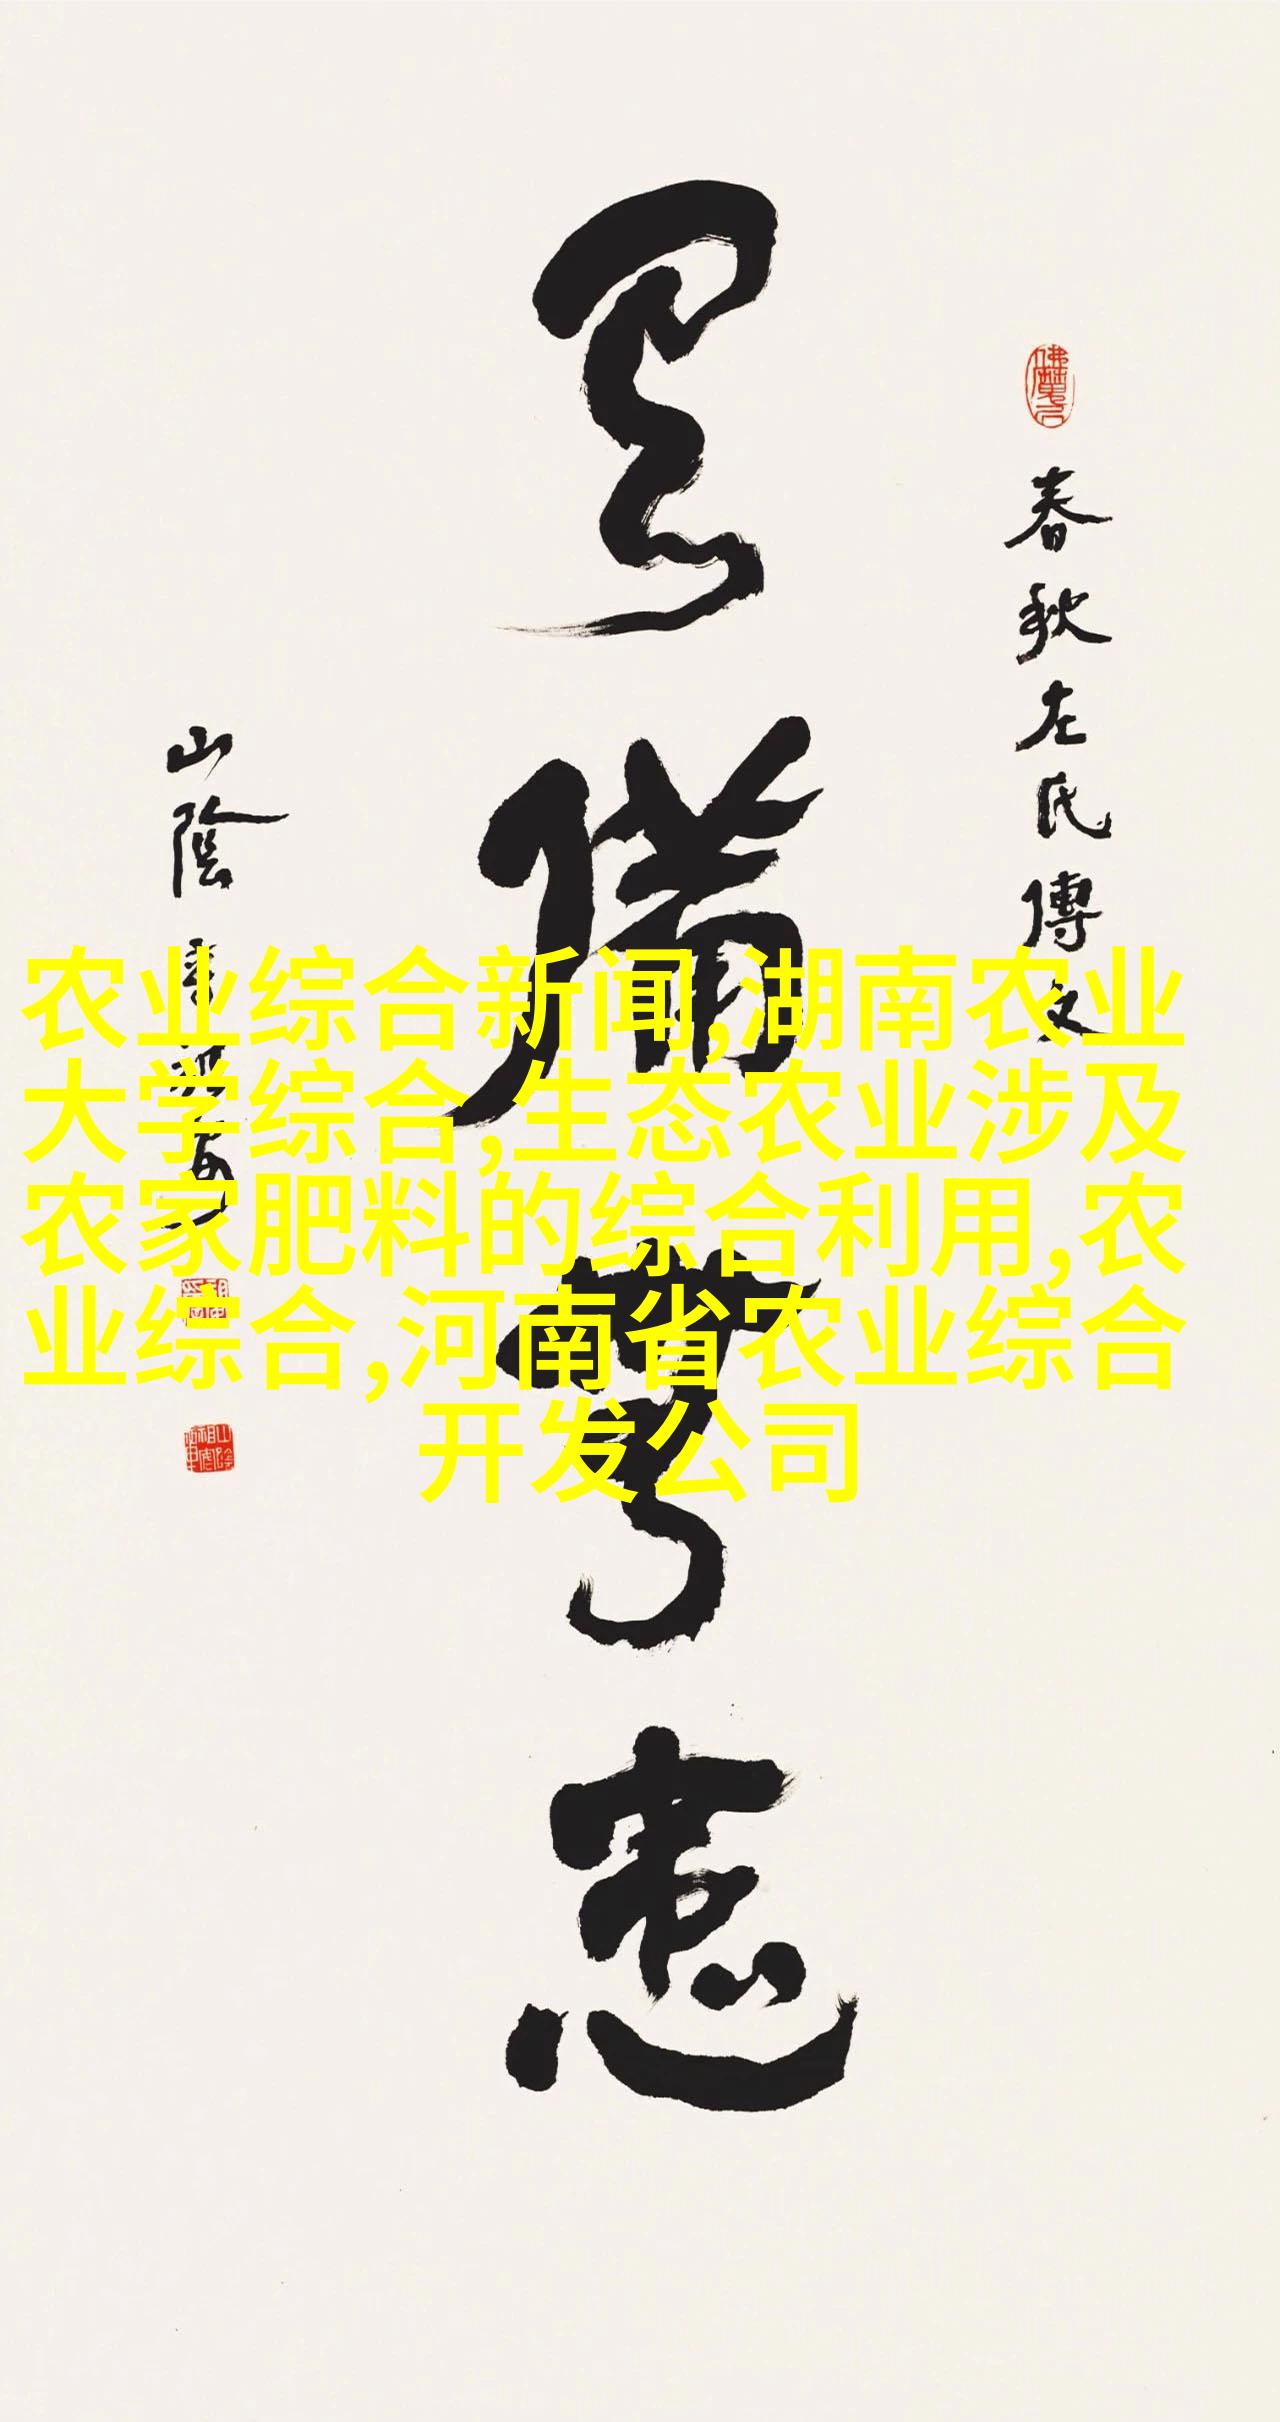 春秋左氏傳文
有備無患
山陰
农业综合新闻,湖南农业
大学综合,生态农业涉及
农家肥料的综合利用,农
业综合,河南省农业综合
开发公司